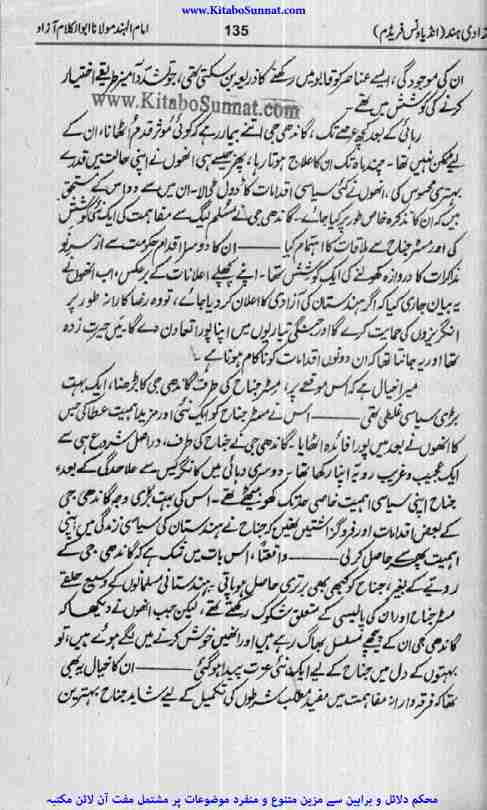 www.KitaboSunnat.com
آزادی ہند (انڈیا ونس فریڈم) 135 امام الہند مولانا ابوالکلام آزاد
ان کی موجودگی، ایسے عناصر کو قابو میں رکھنے کا ذریعہ بن سکتی تھی، جو تشدد آمیز طریقے اختیار
کرنے کی کوشش میں تھے۔
www.KitaboSunnat.com
رہائی کے بعد کچھ عرصے تک، گاندھی جی اتنے بیمار رہے کہ کوئی مؤثر قدم اٹھانا، ان کے
لیے ممکن نہیں تھا۔ چند ماہ تک ان کا علاج ہوتا رہا، پھر جیسے ہی انھوں نے اپنی حالت میں قدرے
بہتری محسوس کی، انھوں نے کئی سیاسی اقدامات کا ڈول ڈالا۔ ان میں سے دو اس کے مستحق
ہیں کہ ان کا تذکرہ خاص طور پر کیا جائے۔ گاندھی جی نے مسلم لیگ سے مفاہمت کی ایک نئی کوشش
کی اور مسٹر جناح سے ملاقات کا اہتمام کیا ــــــ ان کا دوسرا اقدام حکومت سے از سرِ نو
مذاکرات کا دروازہ کھولنے کی ایک کوشش تھا۔ اپنے پچھلے اعلانات کے برعکس، اب انھوں نے
یہ بیان جاری کیا کہ اگر ہندستان کی آزادی کا اعلان کر دیا جائے، تو وہ رضاکارانہ طور پر
انگریزوں کی حمایت کرے گا اور جنگی تیاریوں میں اپنا پورا تعاون دے گا۔ میں حیرت زدہ
تھا اور یہ جانتا تھا کہ ان دونوں اقدامات کو ناکام ہونا ہے۔
میرا خیال ہے کہ اس موقعے پر، مسٹر جناح کی طرف گاندھی جی کا بڑھنا، ایک بہت
بڑی سیاسی غلطی تھی ــــــ اس نے مسٹر جناح کو ایک نئی اور مزید اہمیت عطا کی جس
کا انھوں نے بعد میں پورا فائدہ اٹھایا۔ گاندھی جی نے جناح کی طرف، دراصل شروع ہی سے
ایک عجیب و غریب رویہ اپنا رکھا تھا۔ دوسری دہائی میں کانگریس سے علاحدگی کے بعد،
جناح اپنی سیاسی اہمیت خاصی حد تک کھو بیٹھے تھے۔ اس کی بہت بڑی وجہ گاندھی جی
کے بعض اقدامات اور فروگزاشتیں تھیں کہ جناح نے ہندستان کی سیاسی زندگی میں اپنی
اہمیت پھر سے حاصل کر لی ــــــ واقعتاً، اس بات میں شک ہے کہ گاندھی جی کے
رویے کے بغیر، جناح کو کبھی بھی برتری حاصل ہو پاتی۔ ہندستانی مسلمانوں کے وسیع حلقے
مسٹر جناح اور ان کی پالیسی کے متعلق شکوک رکھتے تھے، لیکن جب انھوں نے دیکھا کہ
گاندھی جی ان کے پیچھے مسلسل بھاگ رہے ہیں اور انھیں خوش کرنے میں لگے ہوئے ہیں، تو
بہتوں کے دل میں جناح کے لیے ایک نئی عزت پیدا ہو گئی ــــــ ان کا خیال یہ بھی
تھا کہ فرقہ وارانہ مفاہمت میں مفید مطلب شرطوں کی تکمیل کے لیے شاید جناح بہترین
محکم دلائل و براہین سے مزین متنوع و منفرد موضوعات پر مشتمل مفت آن لائن مکتبہ